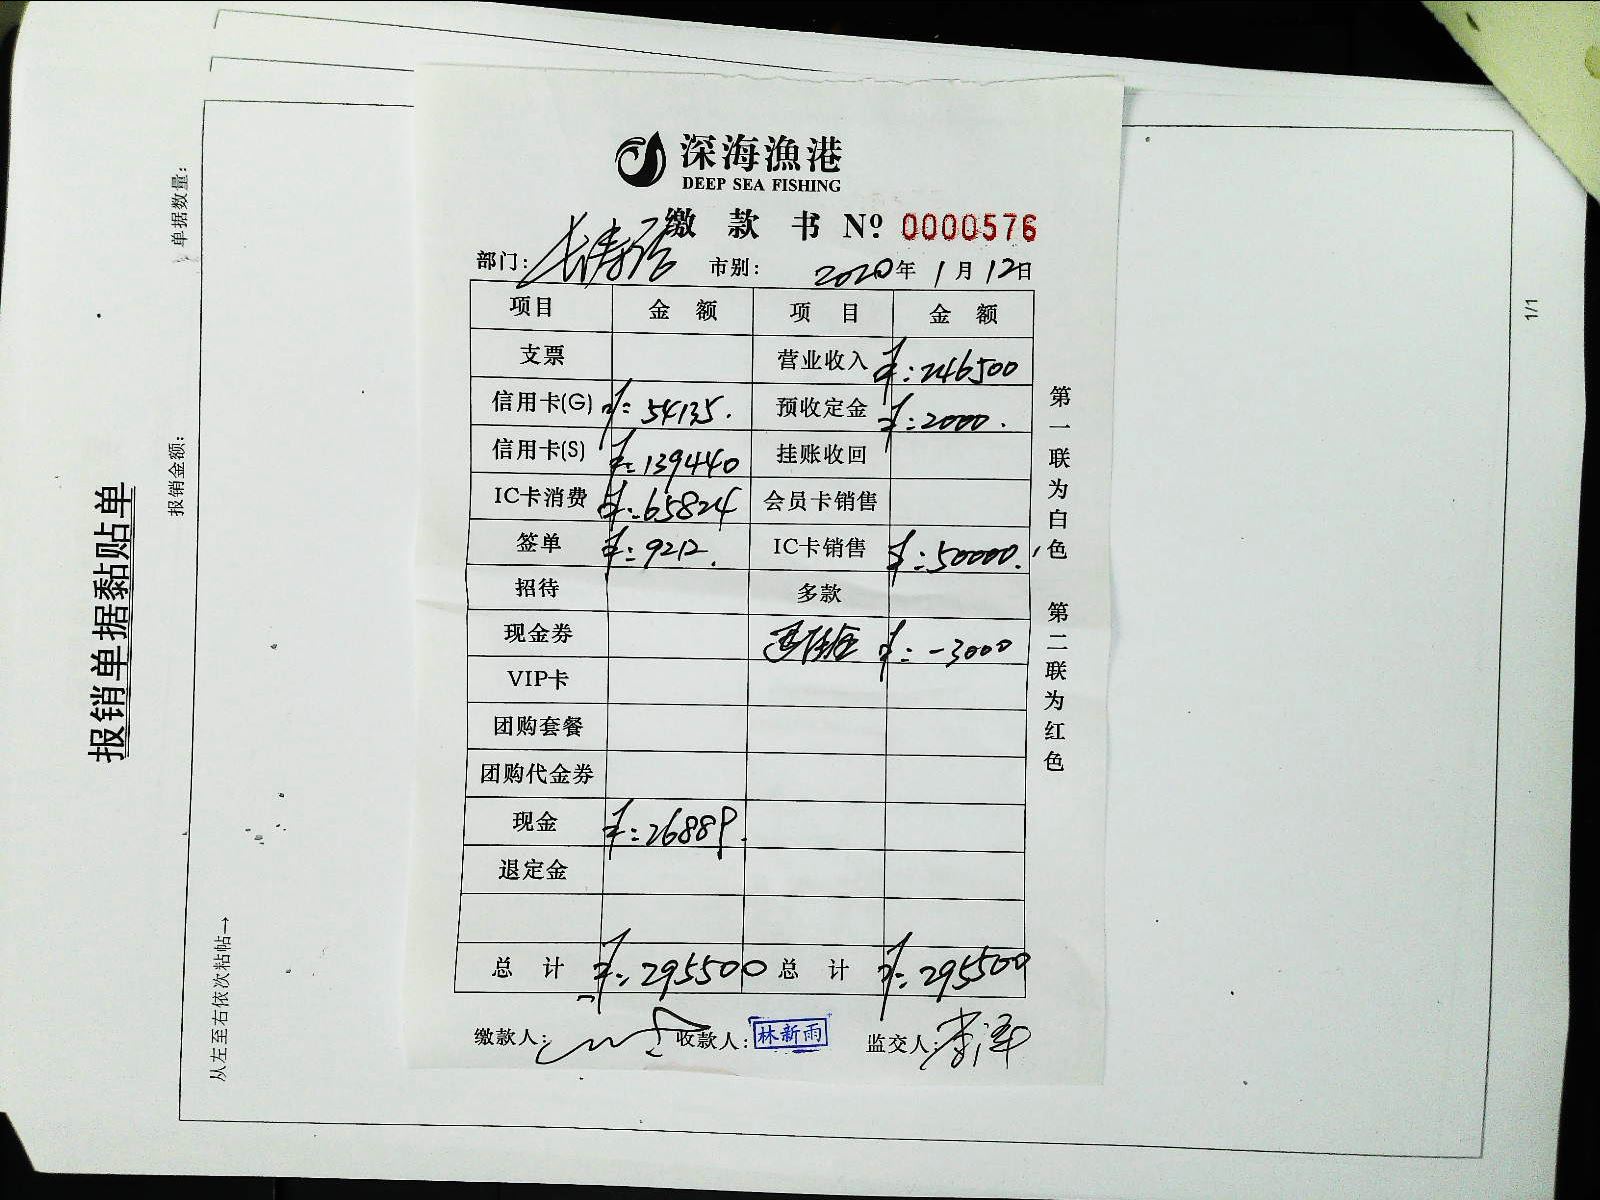 深海漁港
DEEP SEA FISHING
缴款书 Nº 0000576
部门: 长寿路 市别: 2020年1月12日
项目 金额 项目 金额
支票 营业收入 ¥:246500
信用卡(G) ¥:54135. 预收定金 ¥:2000.
信用卡(S) ¥:139440 挂账收回
IC卡消费 ¥:65824 会员卡销售
签单 ¥:9212. IC卡销售 ¥:50000.
招待 多款
现金券 ¥:-3000
VIP卡
团购套餐
团购代金券
现金 ¥:26889.
退定金
总计 ¥:295500 总计 ¥:295500
缴款人: 收款人: 林新雨 监交人:
第一联为白色 第二联为红色
报销单据黏贴单
报销金额: 单据数量:
从左至右依次粘帖→
1/1